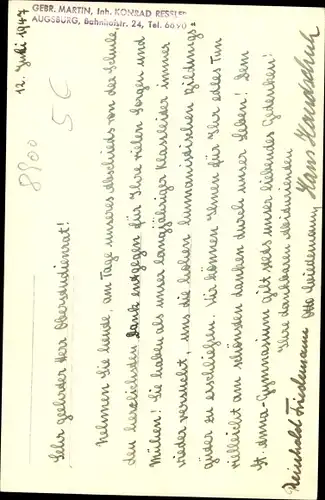 GEBR. MARTIN, Inh. KONRAD RESSLER
AUGSBURG, Bahnhofstr. 24, Tel. 6690
12. Juli 1947
8900
5€
Sehr geehrter Herr Oberstudienrat!
Nehmen Sie heute, am Tage unseres Abschieds von der Schule,
den herzlichsten Dank entgegen für Ihre vielen Sorgen und
Mühen! Sie haben als unser langjähriger Klassleiter immer
wieder versucht, uns die hohen humanistischen Bildungs-
güter zu erschließen. Wir können Ihnen für Ihr edles Tun
vielleicht am schönsten danken durch unser Leben! Dem
St. Anna-Gymnasium gilt stets unser liebendes Gedenken!
Ihre dankbaren Abiturienten
Reinhold Friedemann Otto Weidemann Hans